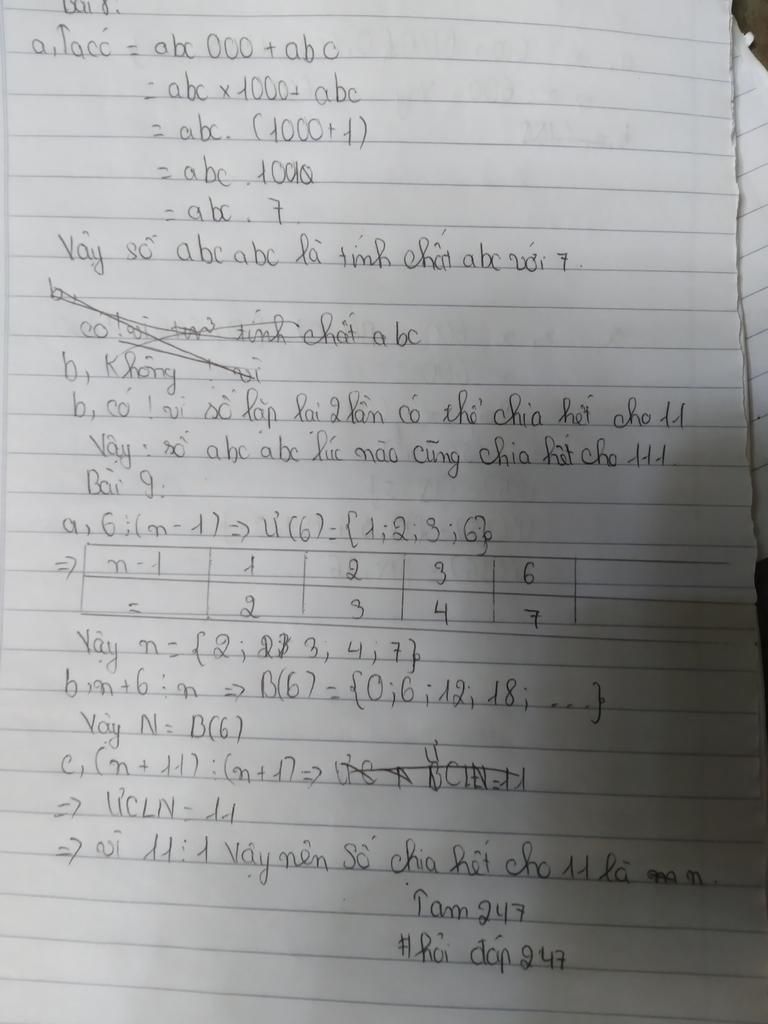 Bài 8.
a, Ta có = abc 000 + abc
= abc x 1000 + abc
= abc. (1000+1)
= abc . 1001
= abc . 7
Vậy số abc abc là tính chất abc với 7.
b,
có ! vì tính chất abc
b, Không : vì
b, có ! vì số lặp lại 2 lần có thể chia hết cho 11
Vậy : số abc abc lúc nào cũng chia hết cho 111
Bài 9:
a, 6 ⋮ (n - 1) => Ư(6) = {1; 2; 3; 6}
=> n-1 1 2 3 6
= 2 3 4 7
Vậy n = {2; 3, 4; 7}
b, n+6 ⋮ n => B(6) = {0; 6; 12; 18; ...}
Vậy N = B(6)
c, (n + 11) ⋮ (n+1) =>
=> ƯCLN = 11
=> vì 11 ⋮ 1 Vậy nên Số chia hết cho 11 là n.
Tam 247
#hỏi đáp 247